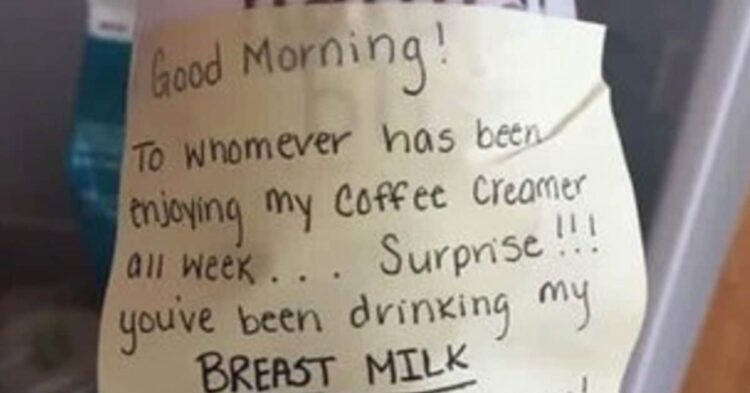 Good Morning!
To whomever has been
enjoying my coffee creamer
all week... Surprise!!!
you've been drinking my
BREAST MILK